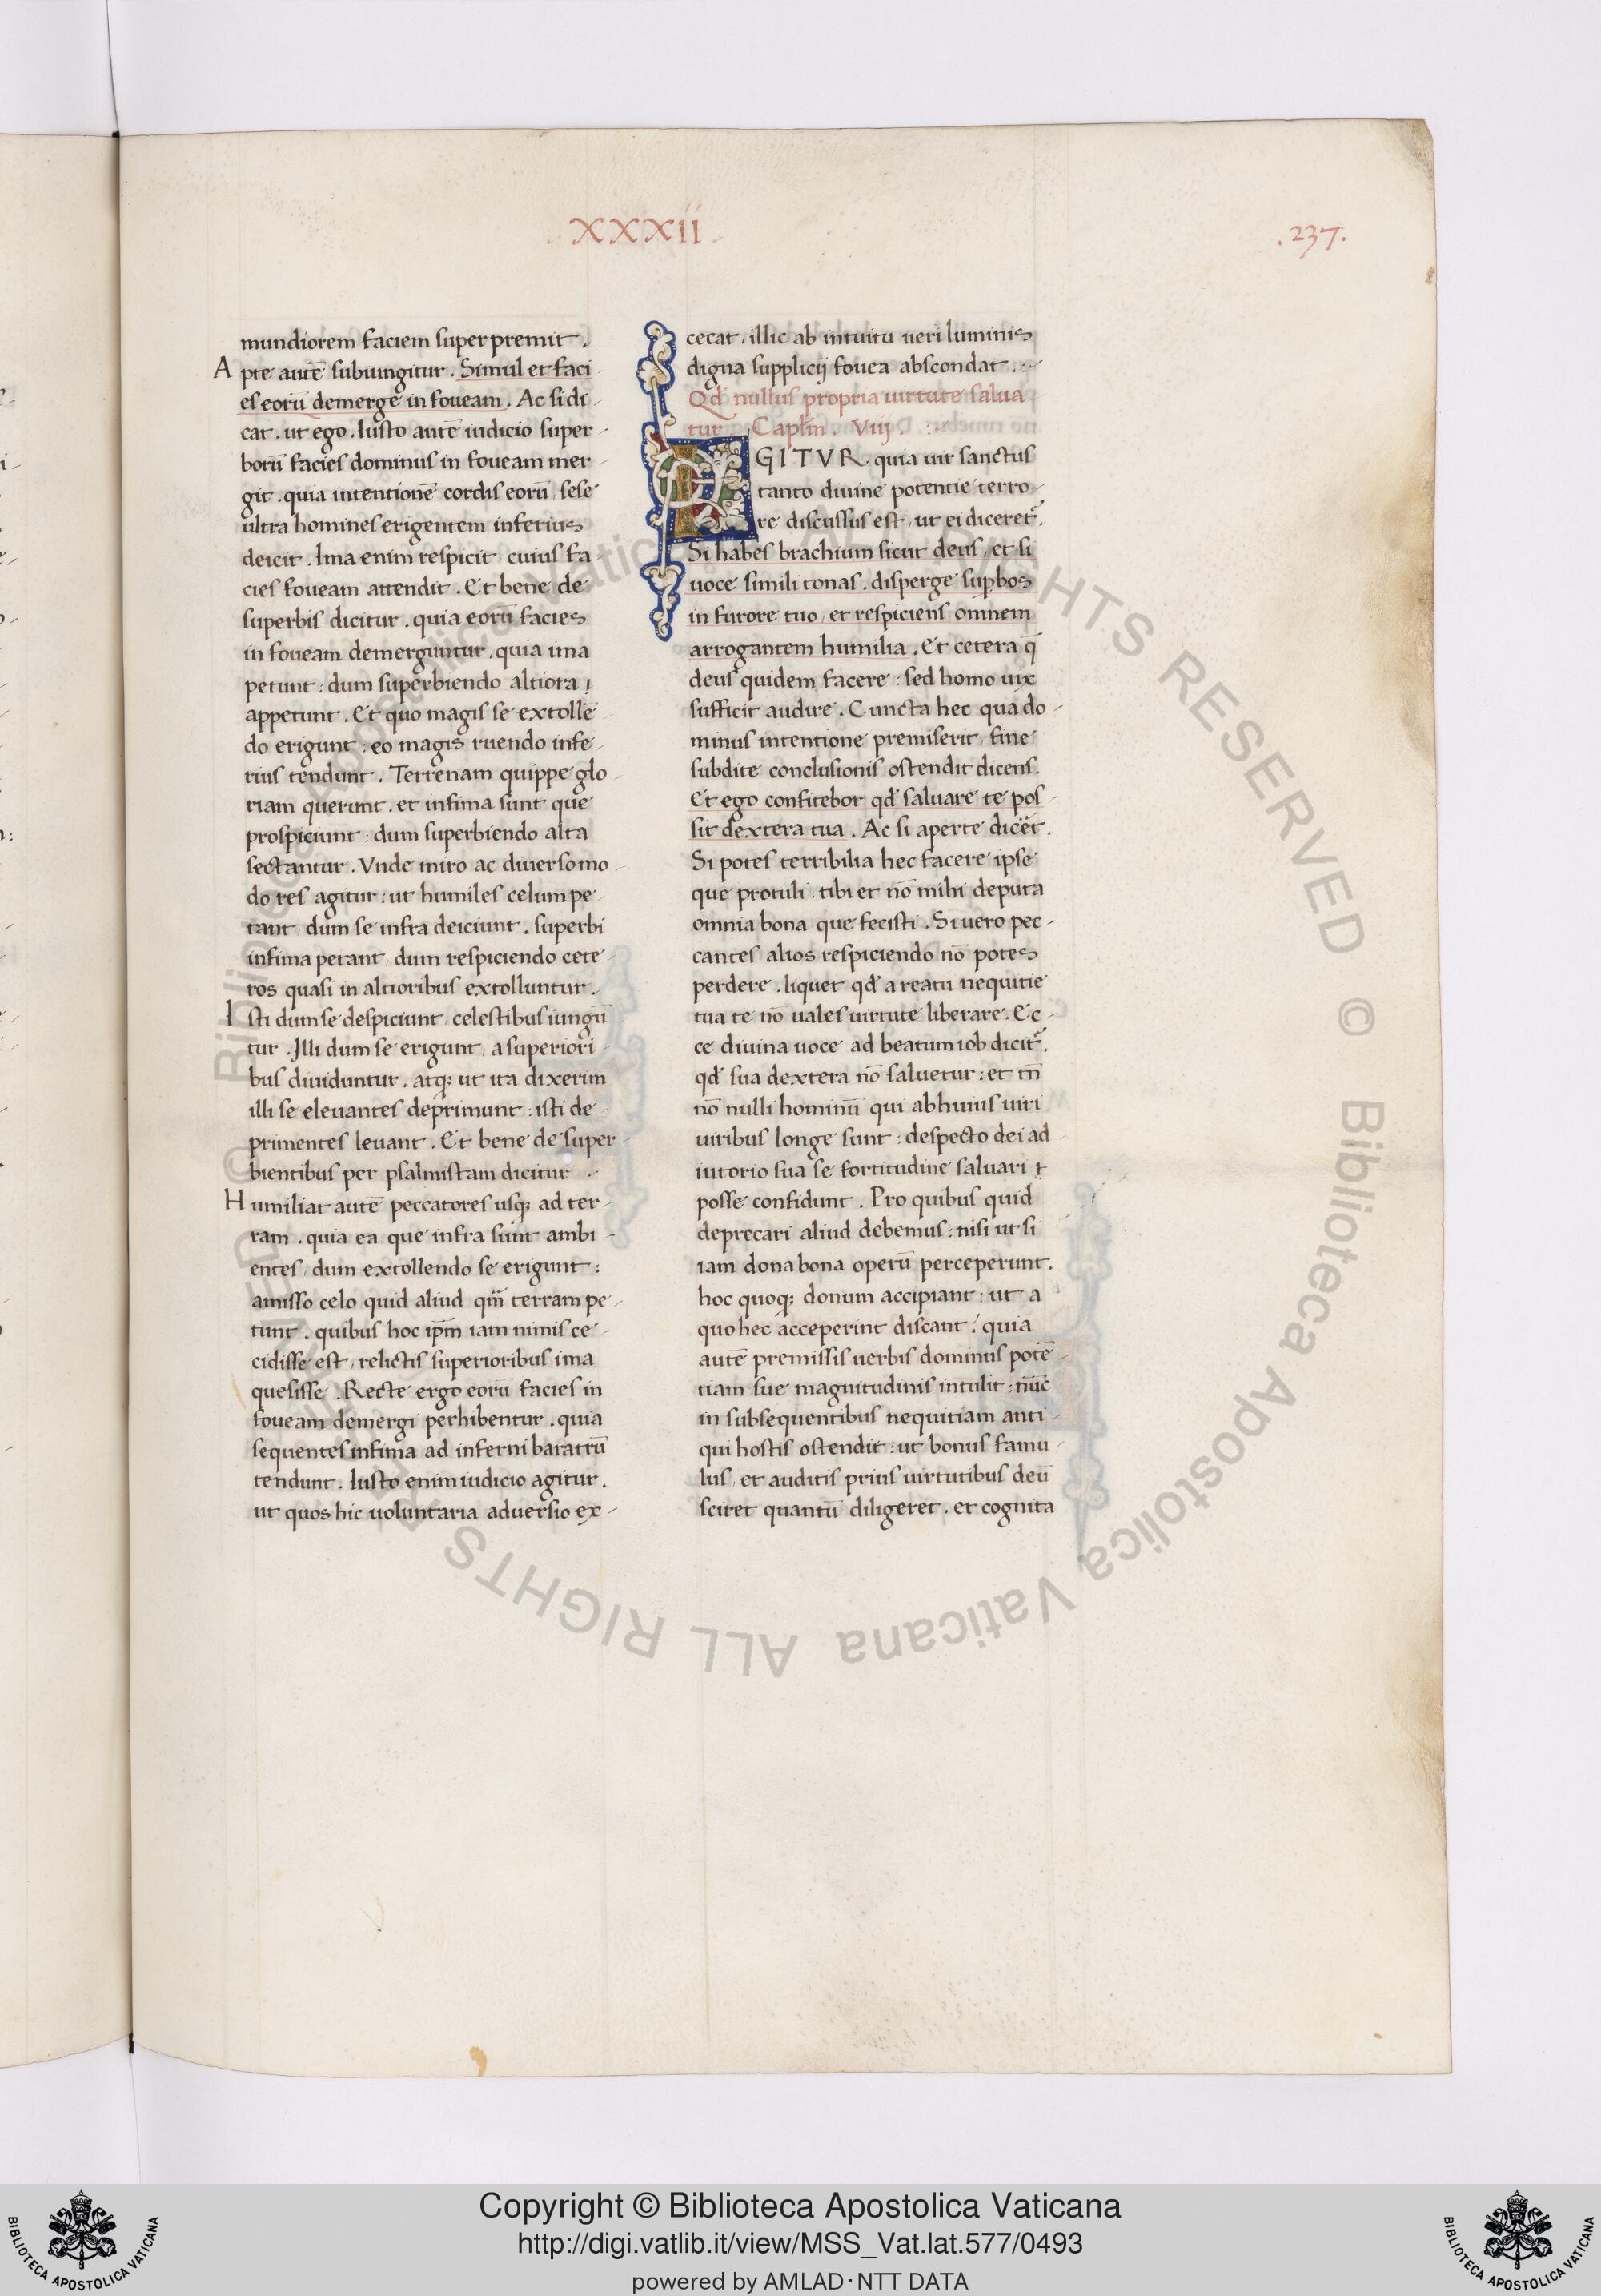 XXXII
.237.
mundiorem faciem super premit.
Apte autē subiungitur. Simul et faci
es eorū demerge in foueam. Ac si di-
cat. ut ego. Iusto autē iudicio super-
borū facies dominus in foueam mer-
git. quia intentionē cordis eorū sese
ultra homines erigentem inferius
deicit. Ima enim respicit, cuius fa
cies foueam attendit. Et bene de
superbis dicitur. quia eorū facies
in foueam demerguntur, quia ima
petunt: dum superbiendo altiora
appetunt. Et quo magis se extollē
do erigunt: eo magis ruendo infe-
rius tendunt. Terrenam quippe glo-
riam querunt. et infima sunt que
prospiciunt: dum superbiendo alta
sectantur. Vnde miro ac diuerso mo
do res agitur: ut humiles celum pe-
tant, dum se infra deiciunt. superbi
infima petant, dum respiciendo cete-
ros quasi in altioribus extolluntur.
Isti dum se despiciunt, celestibus iungū
tur. Illi dum se erigunt, a superiori-
bus diuiduntur. atq; ut ita dixerim
illi se eleuantes deprimunt: isti de-
primentes leuant. Et bene de super-
bientibus per psalmistam dicitur.
Humiliat autē peccatores usq; ad ter-
ram. quia ea que infra sunt ambi-
entes, dum extollendo se erigunt:
amisso celo quid aliud qm̄ terram pe-
tunt. quibus hoc ip̄m iam nimis ce-
cidisse est, relictis superioribus ima
quesisse. Recte ergo eorū facies in
foueam demergi perhibentur. quia
sequentes infima ad inferni baratrū
tendunt. Iusto enim iudicio agitur.
ut quos hic uoluntaria aduersio ex-
cecat, illic ab intuitu ueri luminis
digna supplicij fouea abscondat.
Qd̄ nullus propria uirtute salua
tur Capl̄m. Viij.
IGITVR quia uir sanctus
tanto diuine potentie terro-
re discussus est, ut ei diceret̃.
Si habes brachium sicut deus, et si
uoce simili tonas. disperge sup̱bos
in furore tuo, et respiciens omnem
arrogantem humilia. Et cetera q̄
deus quidem facere: sed homo uix
sufficit audire. Cuncta hec qua do-
minus intentione premiserit, fine
subdite conclusionis ostendit dicens.
Et ego confitebor qd̄ saluare te pos-
sit dextera tua. Ac si aperte dicer̃et.
Si potes terribilia hec facere ipse
que protuli: tibi et nō mihi deputa
omnia bona que fecisti. Si uero pec-
cantes alios respiciendo nō potes
perdere. liquet qd̄ a reatu nequitie
tua te nō uales uirtute liberare. Ec-
ce diuina uoce ad beatum iob dicit̃.
qd̄ sua dextera nō saluetur: et tn̄
nō nulli hominū qui ab huius uiri
uiribus longe sunt: despecto dei ad-
iutorio sua se fortitudine saluari
posse confidunt. Pro quibus quid
deprecari aliud debemus: nisi ut si
iam dona bona operū perceperunt.
hoc quoq; donum accipiant: ut a
quo hec acceperint discant. quia
autē premissis uerbis dominus potē-
tiam sue magnitudinis intulit: nūc
in subsequentibus nequitiam anti-
qui hostis ostendit: ut bonus famu-
lus, et auditis prius uirtutibus deū
sciret quantū diligeret. et cognita
© Biblioteca Apostolica Vaticana ALL RIGHTS RESERVED © Biblioteca Apostolica Vaticana ALL RIGHTS RESERVED
Copyright © Biblioteca Apostolica Vaticana
http://digi.vatlib.it/view/MSS_Vat.lat.577/0493
powered by AMLAD·NTT DATA
BIBLIOTECA APOSTOLICA VATICANA
BIBLIOTECA APOSTOLICA VATICANA